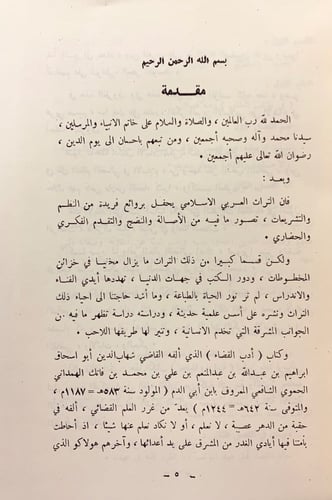 بسم الله الرحمن الرحيم
مقـدمة
الحمد لله رب العالمين ، والصلاة والسلام على خاتم الانبياء والمرسلين ،
سيدنا محمد وآله وصحبه أجمعين ، ومن تبعهم باحسان الى يوم الدين ،
رضوان الله تعالى عليهم أجمعين .
وبعـد :
فان التراث العربي الاسلامي يحفل بروائع فريدة من النظم
والتشريعات ، تصور ما فيه من الأصالة والنضج والتقدم الفكري
والحضاري .
ولكن قسما كبيرا من ذلك التراث ما يزال مخبئا في خزائن
المخطوطات ، ودور الكتب في جهات الدنيا ، تهددها أيدي الفناء
والاندراس ، لم تر نور الحياة بالطباعة ، وما أشد حاجتنا الى احياء ذلك
التراث ونشره على أسس علمية حديثة ، ودراسته دراسة تظهر ما فيه من
الجوانب المشرقة التي تخدم الانسانية ، وتنير لها طريقها اللاحب .
وكتاب ( أدب القضاء ) الذي ألفه القاضي شهاب‌الدين أبو اسحاق
ابراهيم بن عبدالله بن عبدالمنعم بن علي بن محمد بن فاتك الهمداني
الحموي الشافعي المعروف بابن أبي الدم ( المولود سنة ٥٨٣هـ = ١١٨٧م ،
والمتوفى سنة ٦٤٢هـ = ١٢٤٤م ) يعد من غرر العلم القضائي ، ألفه في
حقبة من الدهر عصيبة ، لا نعلم ، أو لا نكاد نعلم عنها شيئا ، اذ أحاطت
بأمتنا فيها أيادي الغدر من المشرق على يد أعدائها ، وآخرهم هولاكو الذي
ـ ٥ ـ